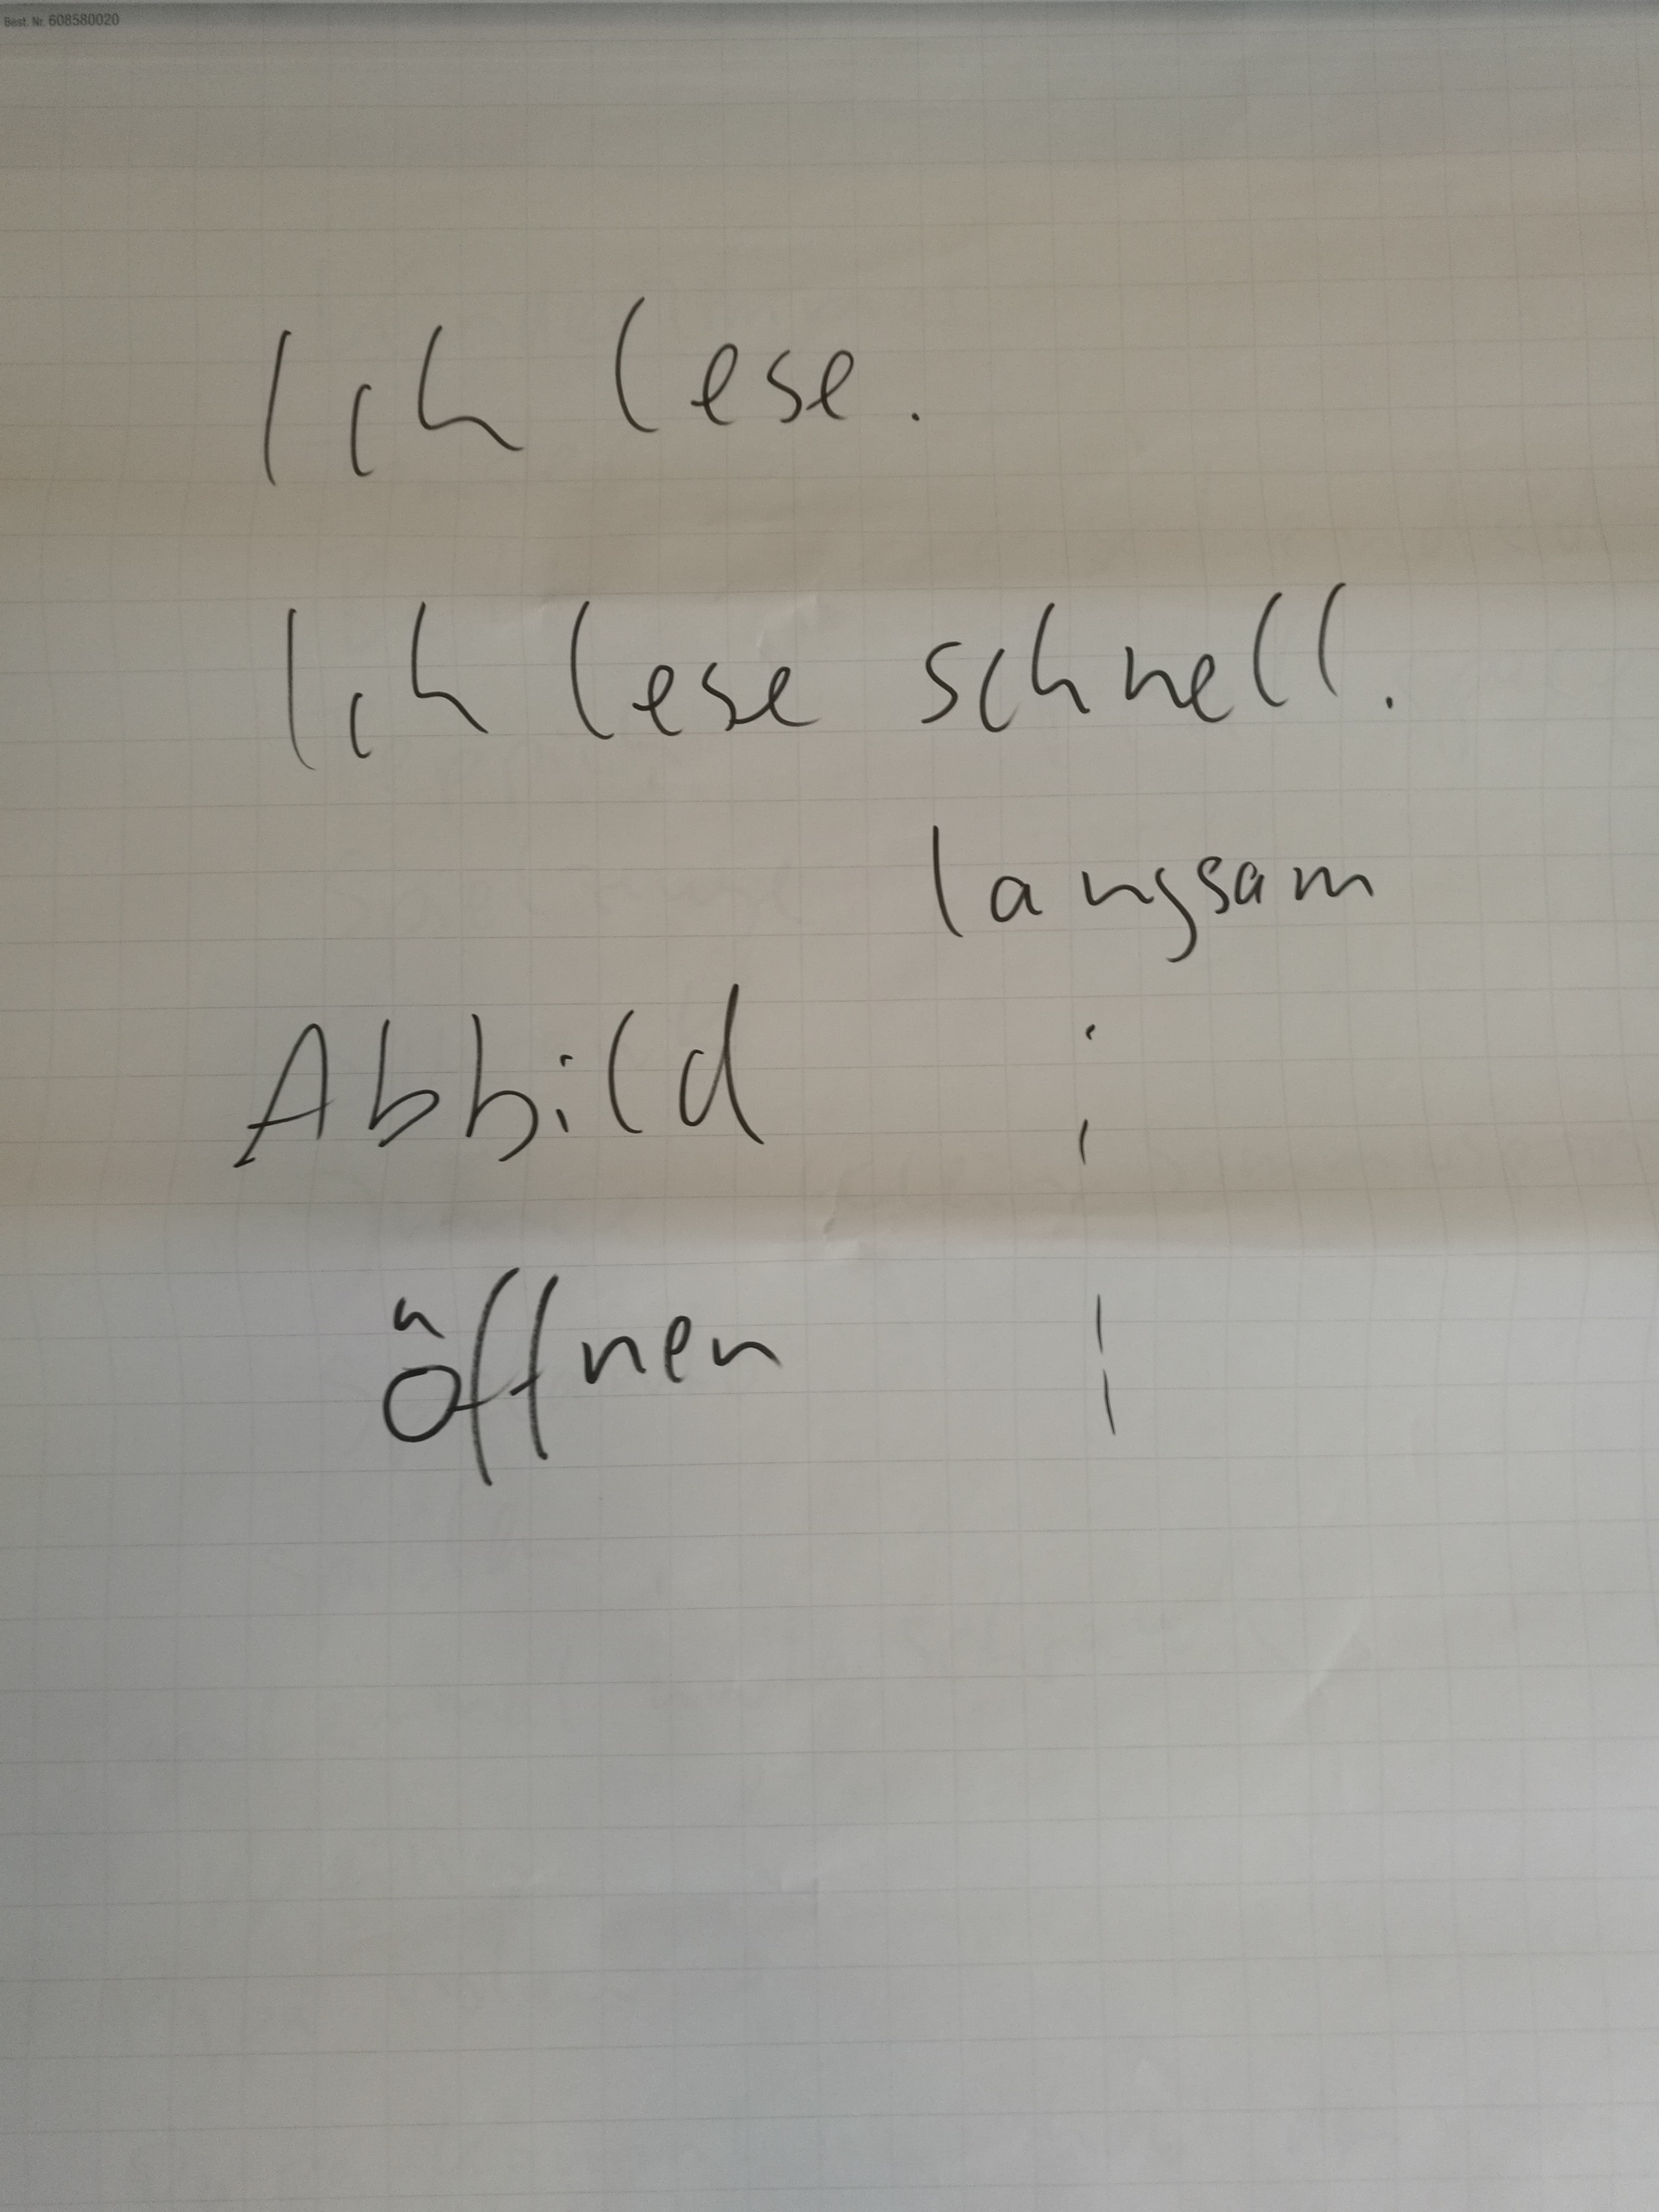 Best. Nr. 608580020
Ich lese.
Ich lese schnell.
langsam
Abbild
öffnen